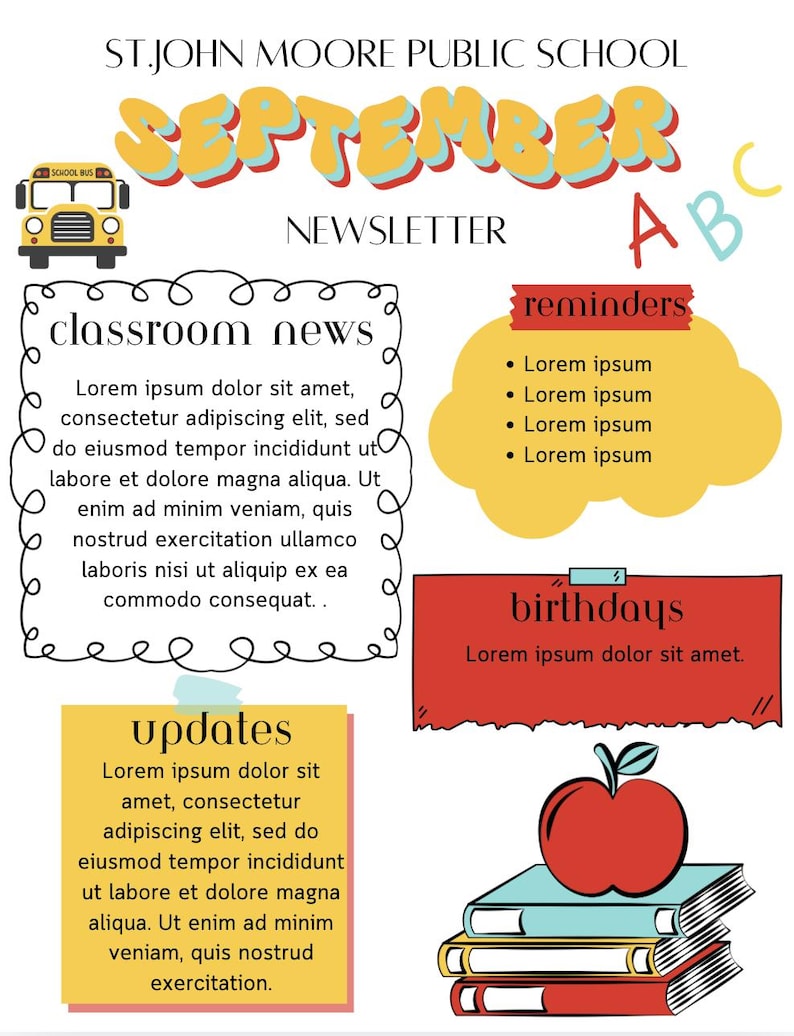 ST.JOHN MOORE PUBLIC SCHOOL
SEPTEMBER
SCHOOL BUS
NEWSLETTER
A B C
classroom news
Lorem ipsum dolor sit amet,
consectetur adipiscing elit, sed
do eiusmod tempor incididunt ut
labore et dolore magna aliqua. Ut
enim ad minim veniam, quis
nostrud exercitation ullamco
laboris nisi ut aliquip ex ea
commodo consequat. .
reminders
• Lorem ipsum
• Lorem ipsum
• Lorem ipsum
• Lorem ipsum
birthdays
Lorem ipsum dolor sit amet.
updates
Lorem ipsum dolor sit
amet, consectetur
adipiscing elit, sed do
eiusmod tempor incididunt
ut labore et dolore magna
aliqua. Ut enim ad minim
veniam, quis nostrud
exercitation.